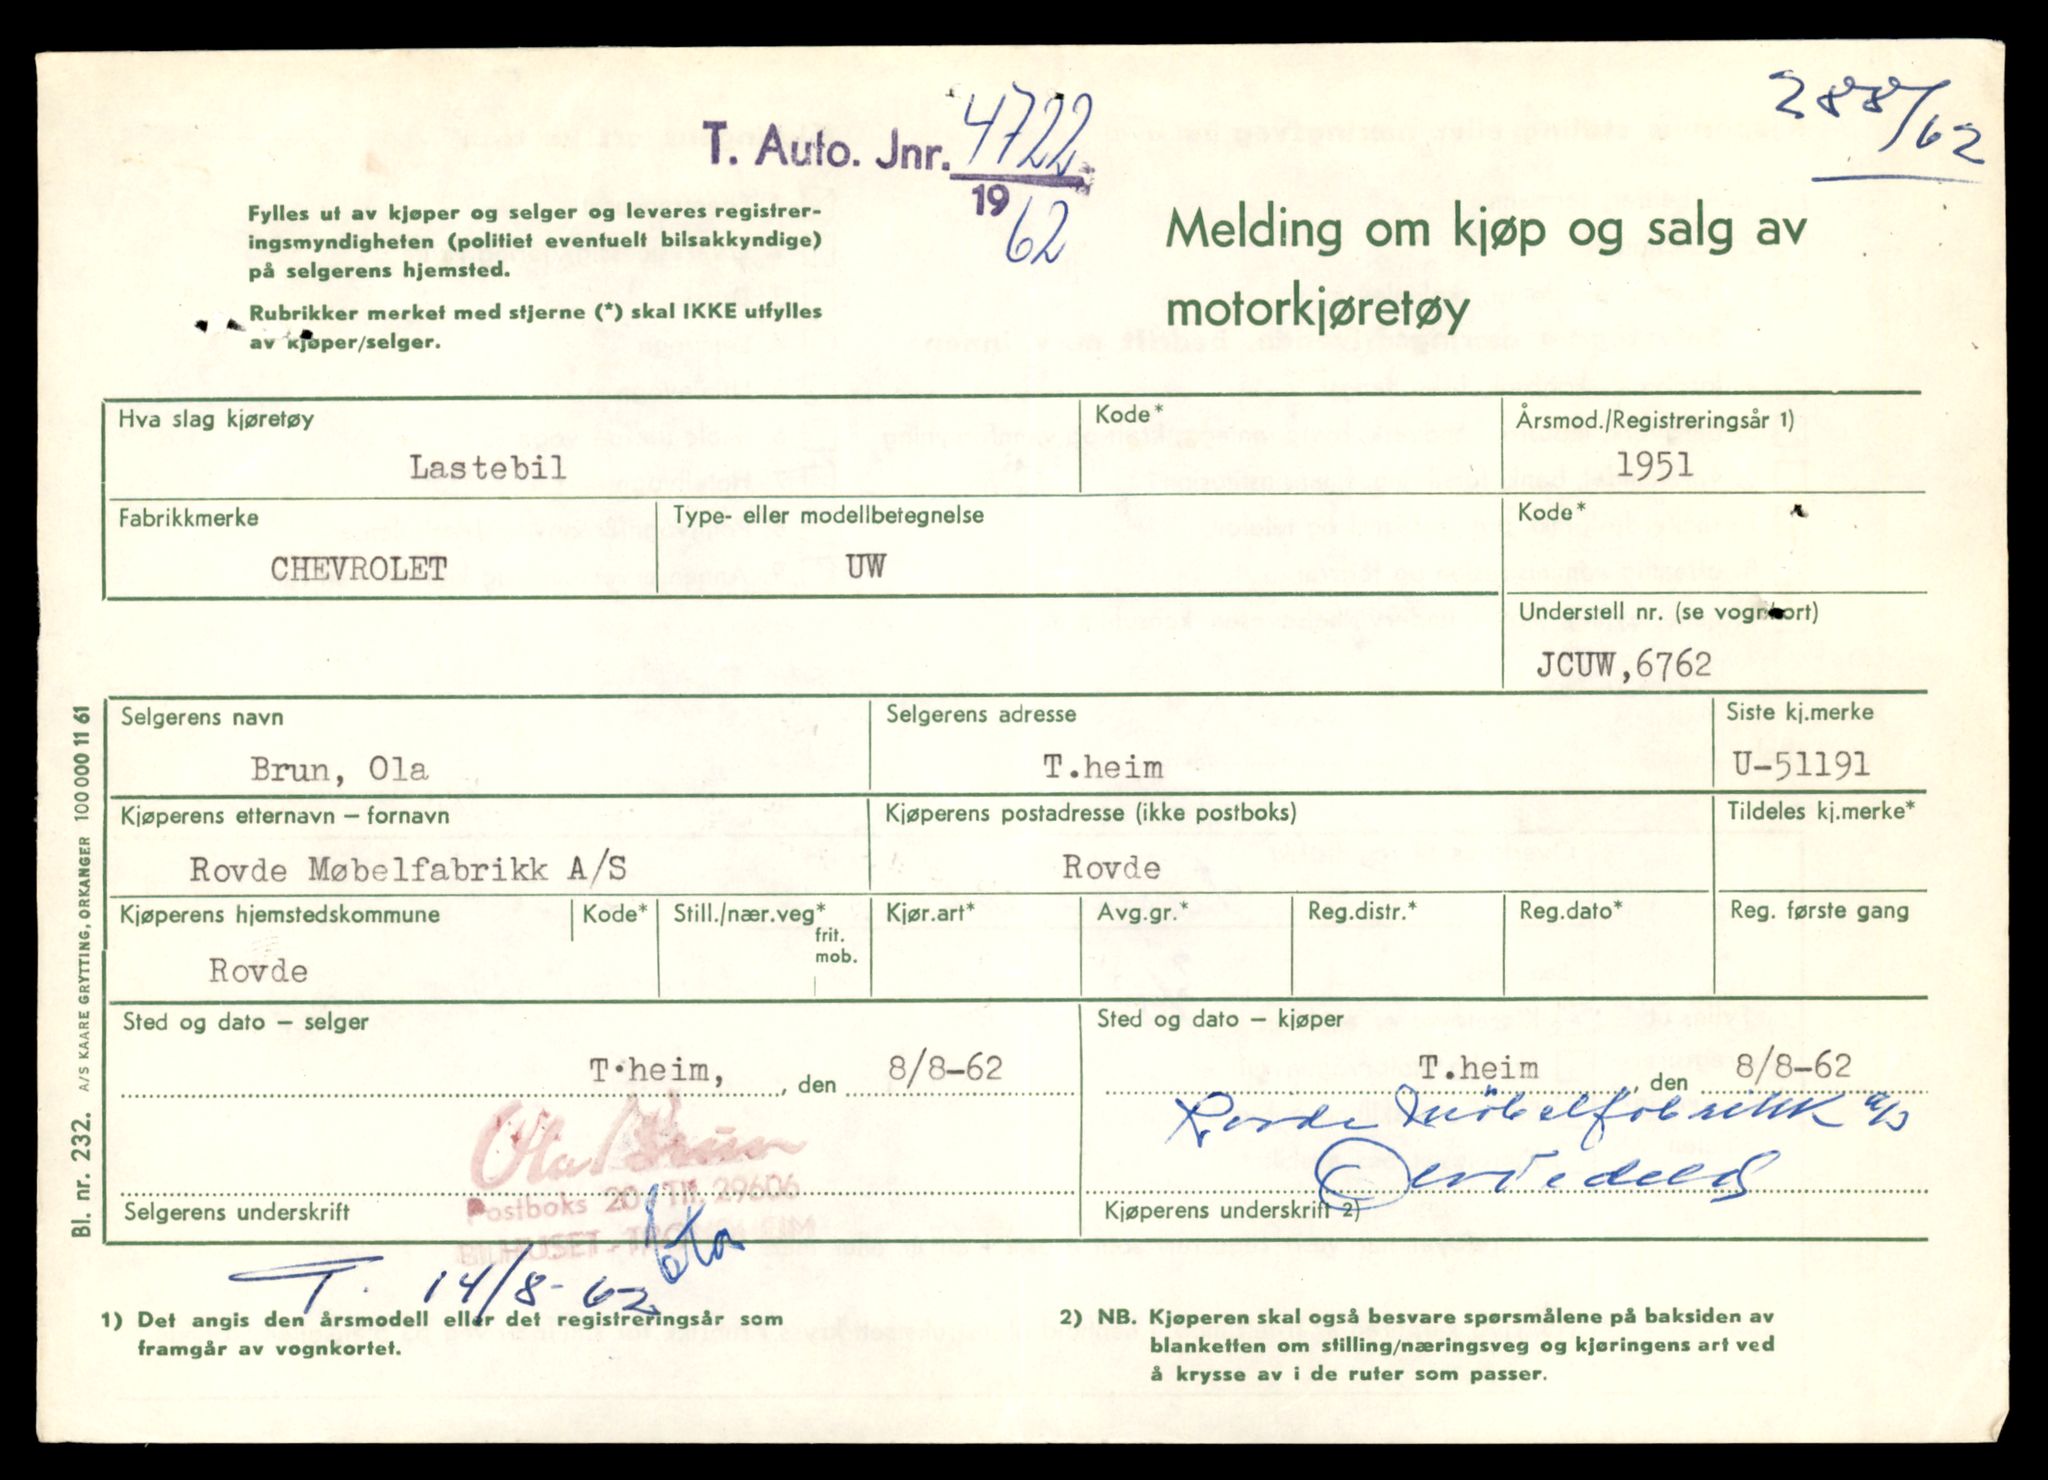 288/62
T. Auto. Jnr. 4722
1962
Fylles ut av kjøper og selger og leveres registrer-
ingsmyndigheten (politiet eventuelt bilsakkyndige)
på selgerens hjemsted.
Rubrikker merket med stjerne (*) skal IKKE utfylles
av kjøper/selger.
Melding om kjøp og salg av
motorkjøretøy
Hva slag kjøretøy
Kode*
Årsmod./Registreringsår 1)
Lastebil
1951
Fabrikkmerke
Type- eller modellbetegnelse
Kode*
CHEVROLET
UW
Understell nr. (se vognkort)
JCUW,6762
Selgerens navn
Selgerens adresse
Siste kj.merke
Brun, Ola
T.heim
U-51191
Kjøperens etternavn – fornavn
Kjøperens postadresse (ikke postboks)
Tildeles kj.merke*
Rovde Møbelfabrikk A/S
Rovde
Kjøperens hjemstedskommune
Kode*
Still./nær.veg*
frit.
mob.
Kjør.art*
Avg.gr.*
Reg.distr.*
Reg.dato*
Reg. første gang
Rovde
Sted og dato – selger
Sted og dato – kjøper
T.heim, , den 8/8-62
T.heim , den 8/8-62
Ola Brun
Postboks 20 - Tlf. 29606
BILHUSET - TRONDHEIM
Rovde Møbelfabrikk a/s
Selgerens underskrift
Kjøperens underskrift 2)
T. 14/8-62
1) Det angis den årsmodell eller det registreringsår som
framgår av vognkortet.
2) NB. Kjøperen skal også besvare spørsmålene på baksiden av
blanketten om stilling/næringsveg og kjøringens art ved
å krysse av i de ruter som passer.
Bl. nr. 232. A/S KAARE GRYTTING, ORKANGER 100 000 11 61